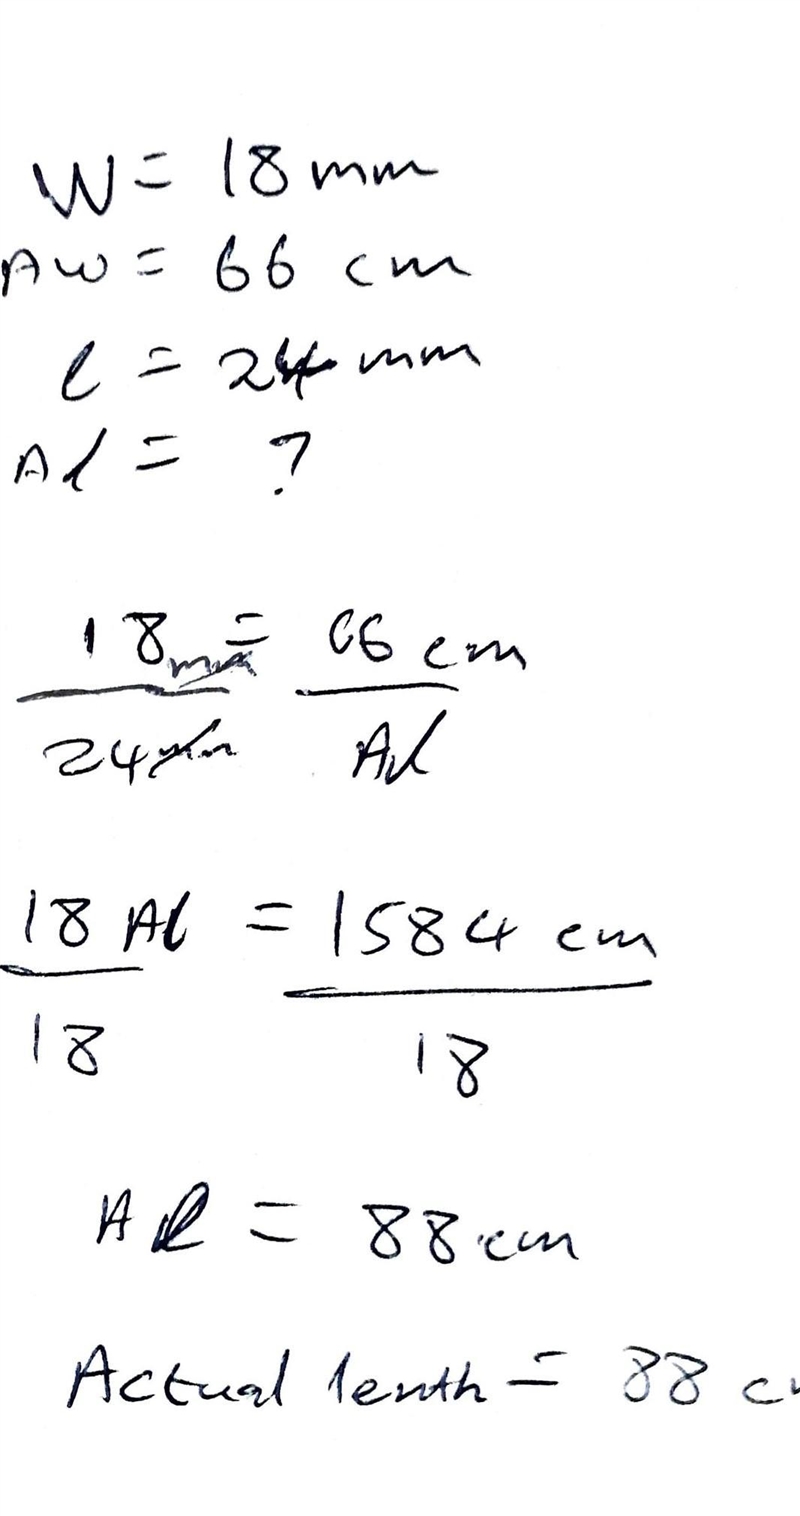 W = 18 mm
AW = 66 cm
l = 24 mm
Al = ?
18mm = 66 cm
24mm Al
18 Al = 1584 cm
18 18
Al = 88 cm
Actual lenth = 88 cm